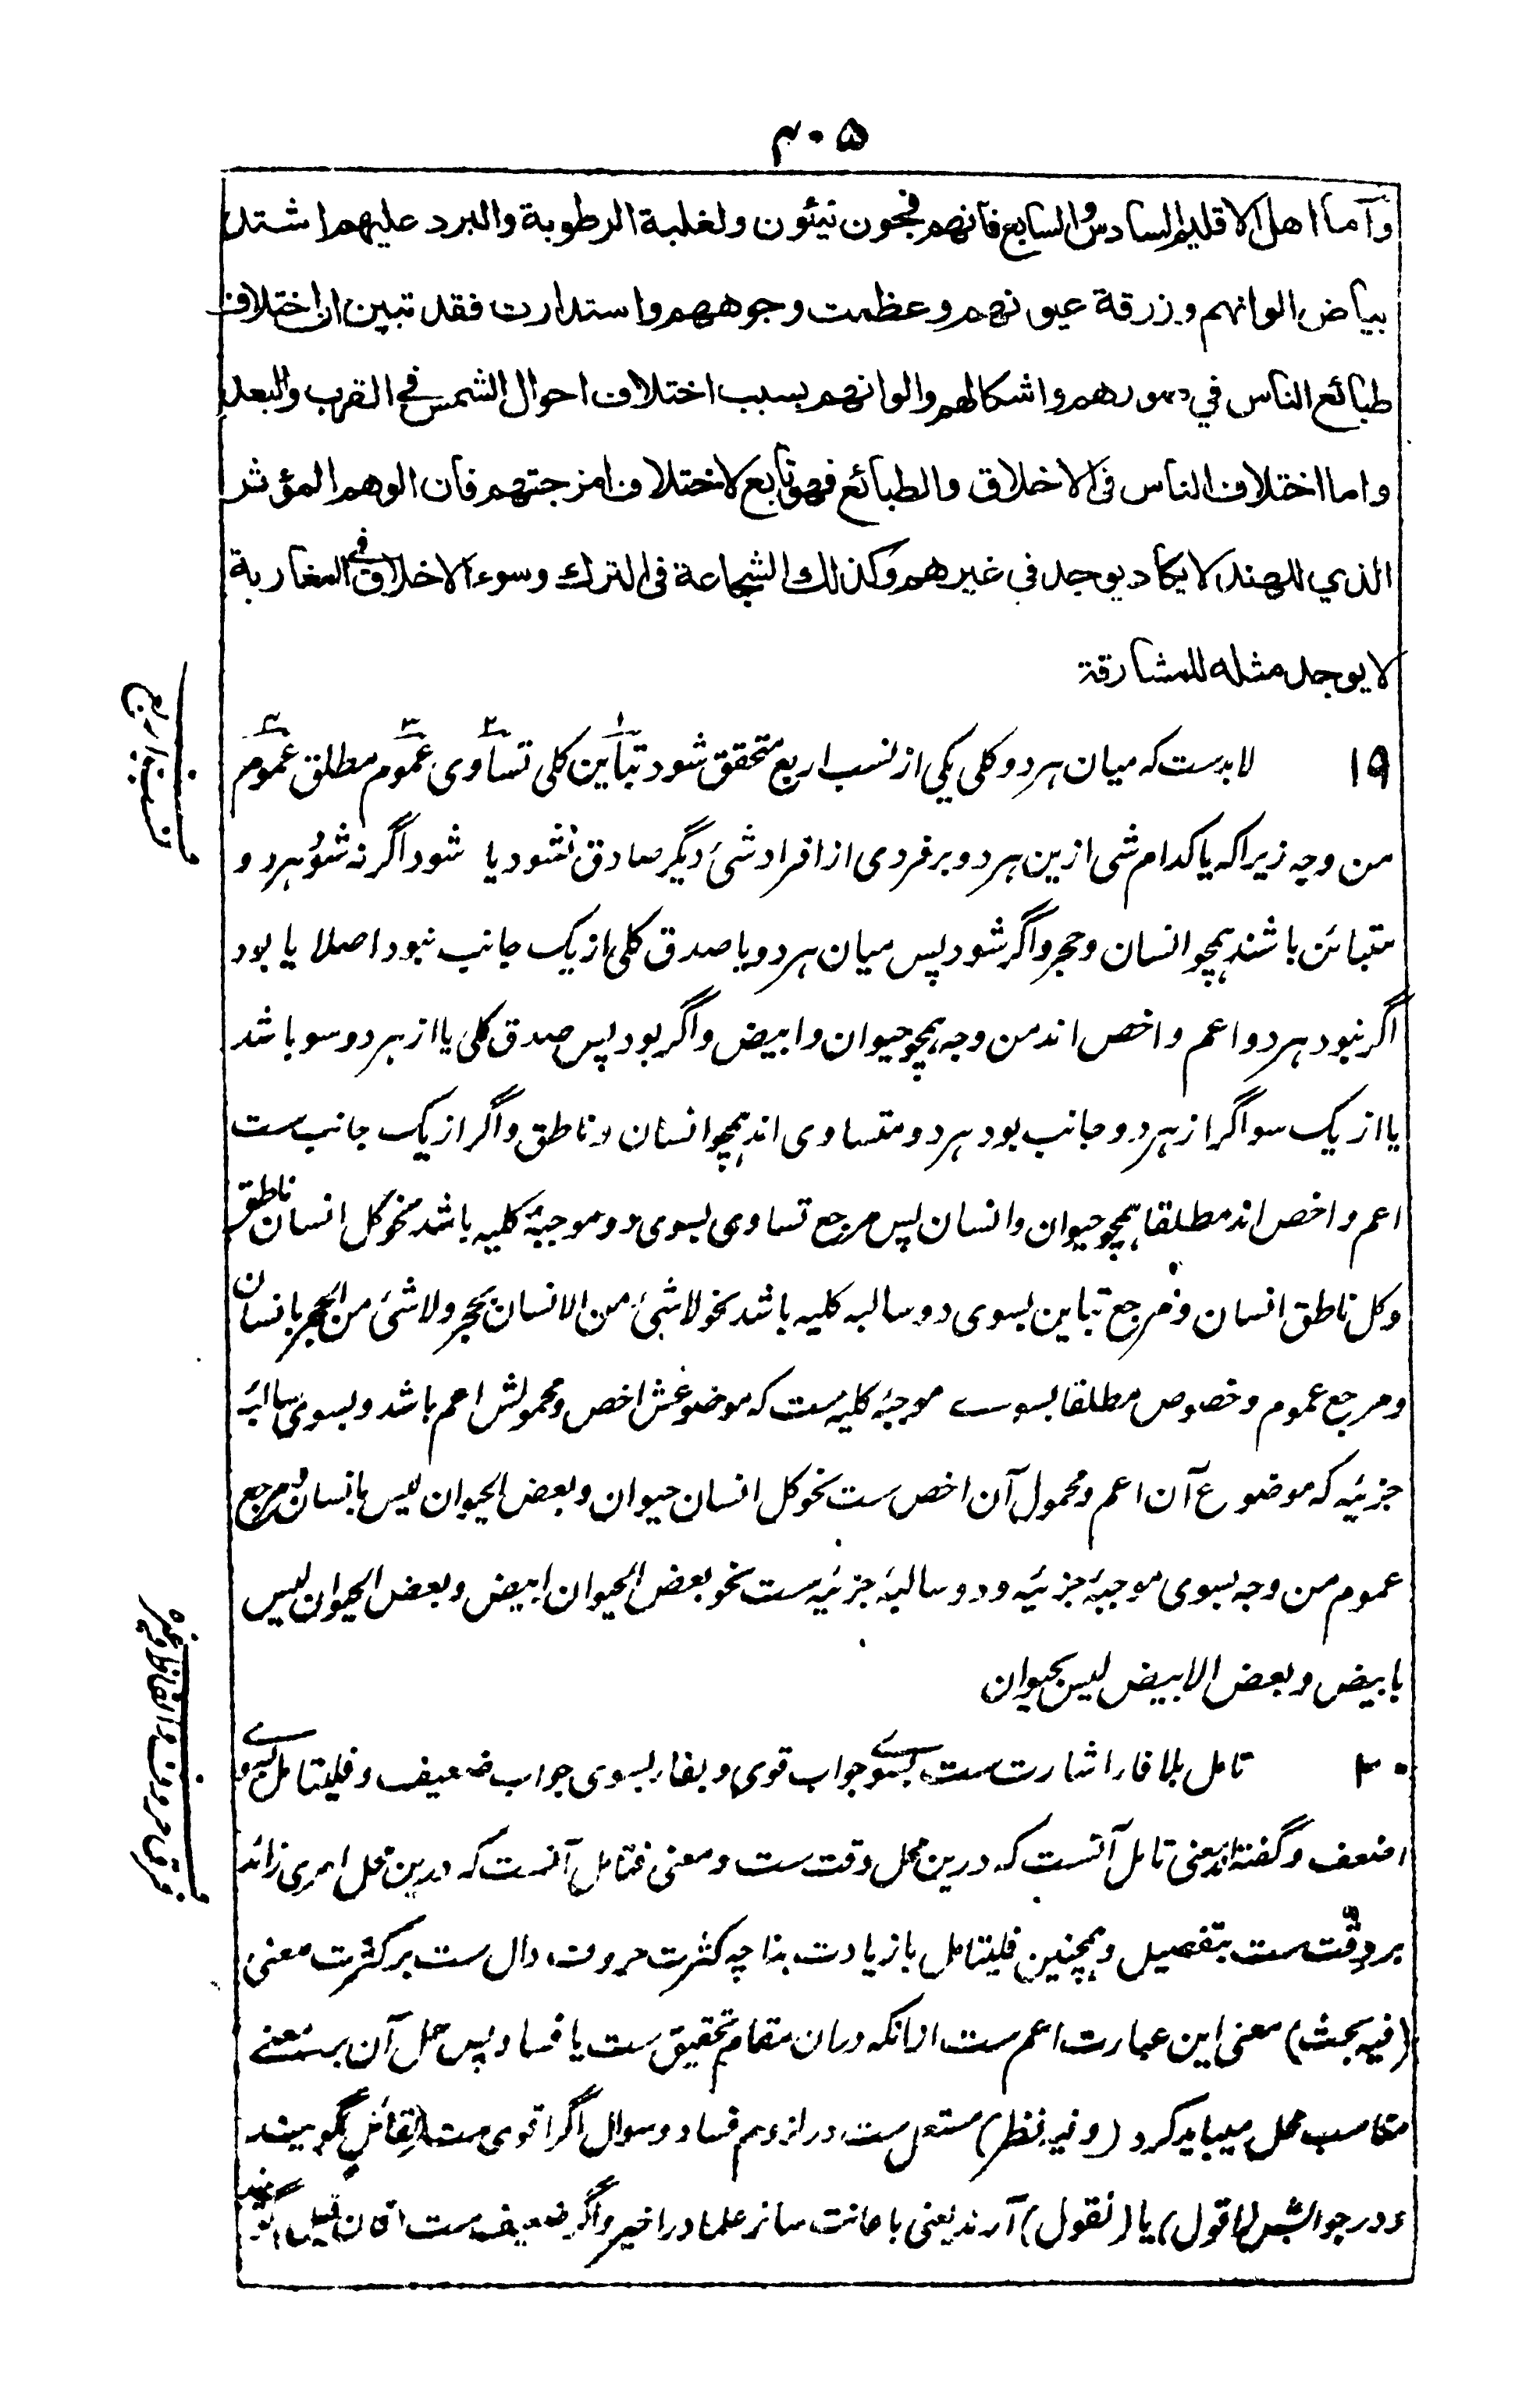 ۴۰۵
وأما اهل الاقليم السادس والسابع فانهم فجون نيئون ولغلبة الرطوبة والبرد عليهم اشتد
بياض الوانهم وزرقة عيونهم وعظمت وجوههم واستدارت فقد تبين ان اختلاف
طبائع الناس في صورهم واشكالهم والوانهم بسبب اختلاف احوال الشمس في القرب والبعد
واما اختلاف الناس فى الاخلاق والطبائع فهو تابع لاختلاف امزجتهم فان الوهم المؤثر
الذي للهند لا يكاد يوجد فى غيرهم وكذلك الشجاعة فى الترك وسوء الاخلاق في المغاربة
لا يوجد مثله للمشارقة
۱۹ لابدست که میان هر دو کلی یکی از نسب اربع متحقق شود تباین کلی تساوی عموم مطلق عموم
من وجه زیرا که یا کدام شی ازین هر دو بر فردی از افراد شئ دیگر صادق نشود یا شود اگر نه شود هر دو
متبائن باشند همچو انسان و حجر و اگر شود پس میان هر دو یا صدق کلی از یک جانب نبود اصلا یا بود
اگر نبود هر دو اعم و اخص اند من وجه همچو حیوان و ابیض و اگر بود پس صدق کلی یا از هر دو سو باشد
یا از یک سو اگر از هر دو جانب بود هر دو متساوی اند همچو انسان و ناطق و اگر از یک جانب ست
اعم و اخص اند مطلقا همچو حیوان و انسان پس مرجع تساوی بسوی دو موجبۂ کلیه باشد نحو کل انسان ناطق
وکل ناطق انسان و مرجع تباین بسوی دو سالبه کلیه باشد نحو لا شئ من الانسان بحجر ولا شئ من الحجر بانسان
و مرجع عموم و خصوص مطلقا بسوے موجبۂ کلیه ست که موضوعش اخص و محمولش اعم باشد و بسوی سالبۂ
جزئیه که موضوع آن اعم و محمول آن اخص ست نحو کل انسان حیوان و بعض الحیوان لیس بانسان و مرجع
عموم من وجه بسوی موجبۂ جزئیه و دو سالبۂ جزئیه ست نحو بعض الحیوان ابیض و بعض الحیوان لیس
بابیض و بعض الابیض لیس بحیوان
۲۰ تامل بلا فا اشارت ست بسوے جواب قوی و بفا بسوی جواب ضعیف و فلیتامل بسوے
اضعف و گفته اند معنی تامل آنست که درین محل دقت ست و معنی فتامل آنست که درین محل امری زائد
بر دقت ست بتفصیل و همچنین فلیتامل با زیادت بنا چه کثرت حروف دال ست بر کثرت معنی
(فیه بحث) معنی این عبارت اعم ست ازانکه دران مقام تحقیق ست یا فساد پس حمل آن بر معنے
مناسب محل میباید کرد (وفیه نظر) مستعمل ست در لزوم فساد و سوال اگر قوی ست (لقائل) گویند
و در جوابش (اقول) یا (نقول) آرند یعنی باعانت سائر علما در اخیر و اگر ضعیف ست (فان قیل) گویند
نسب اربع
فرق حروف و الفاظ وغیره